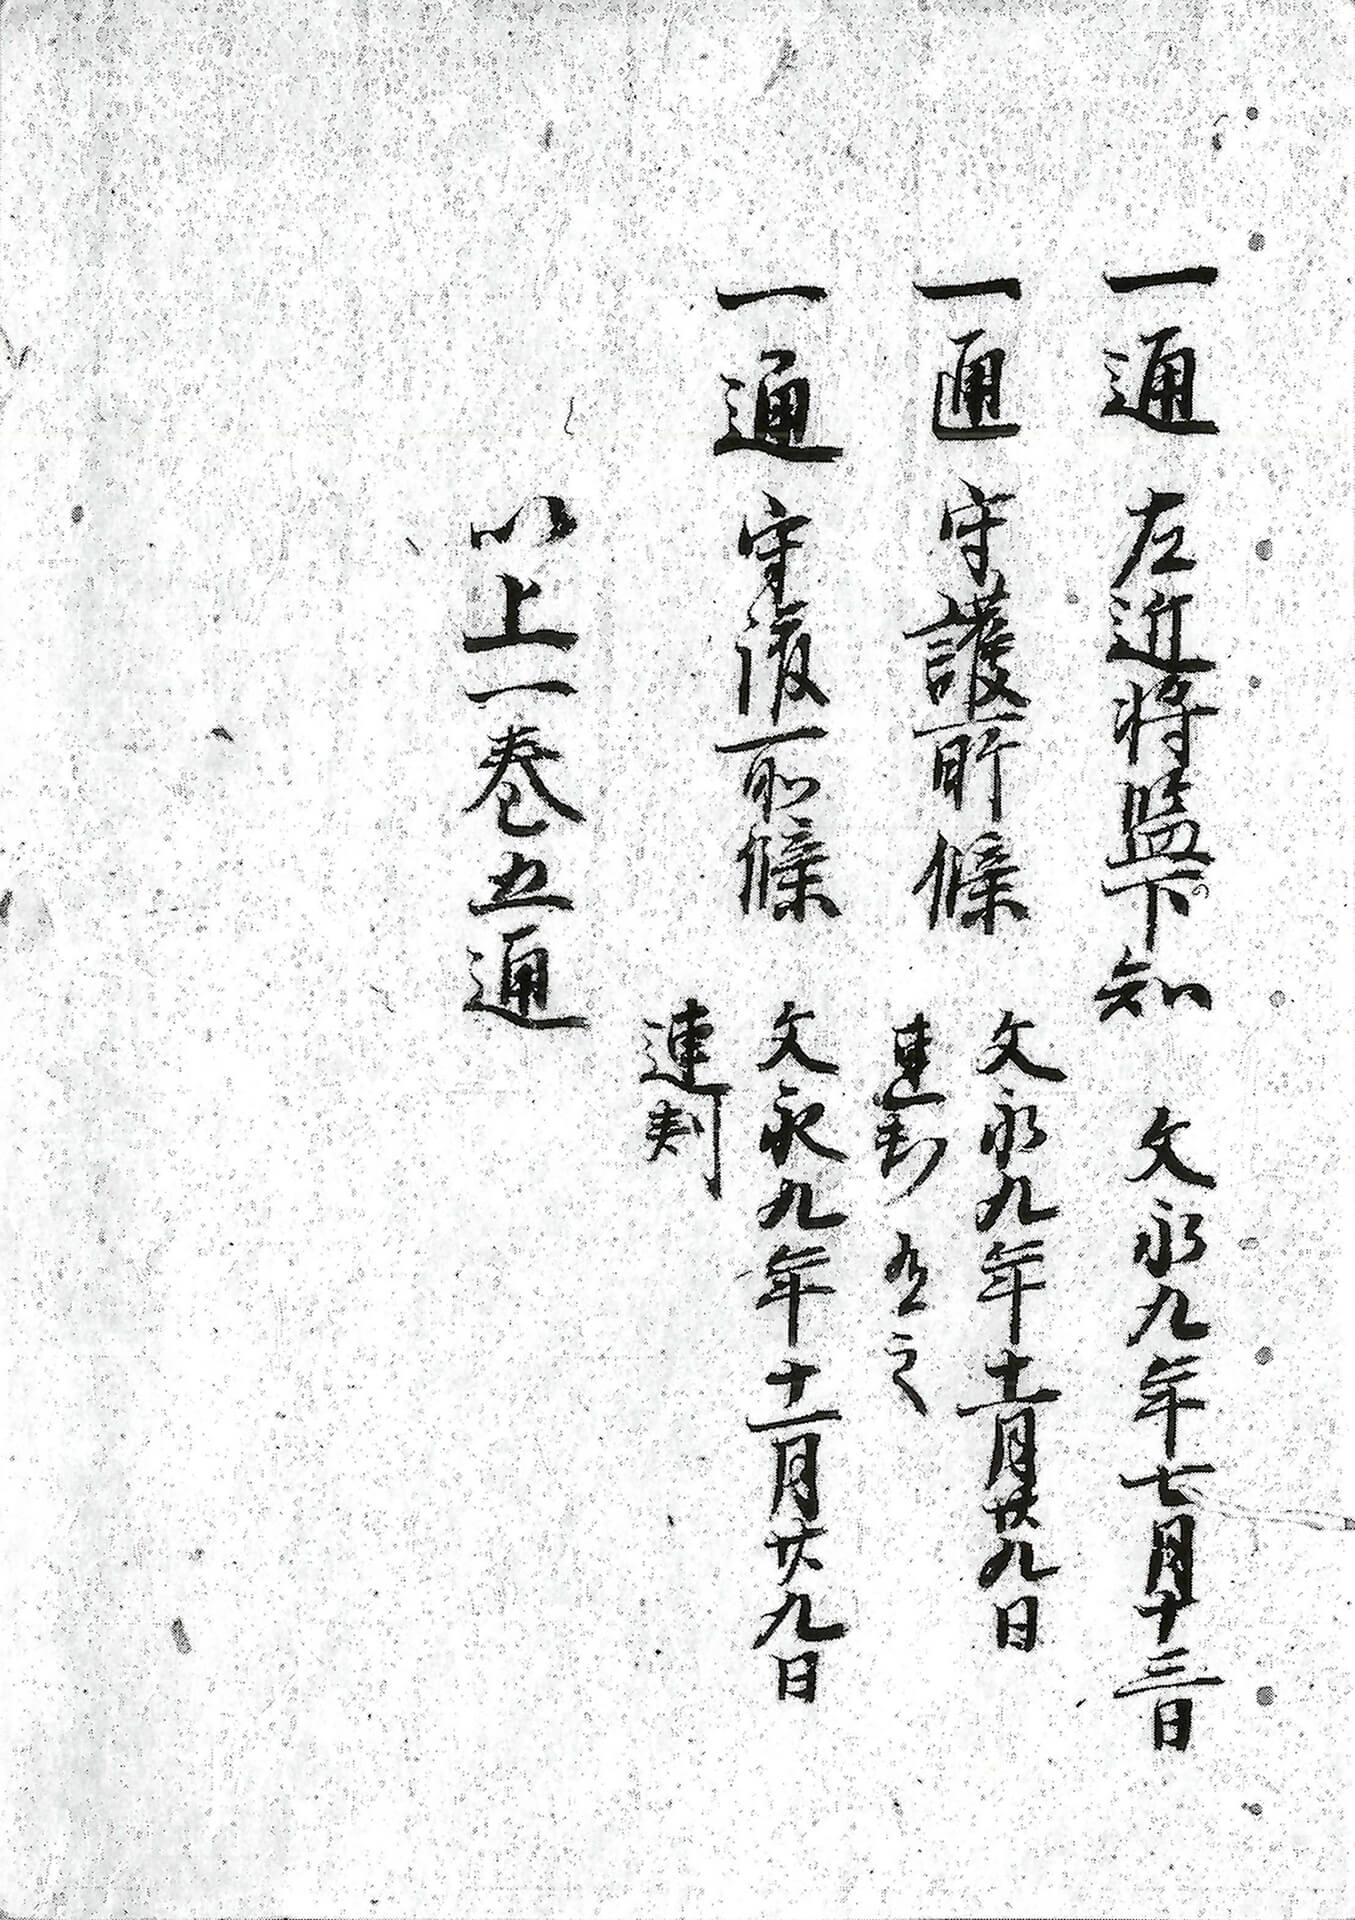 一通 左近将監下知 文永九年七月十三日
一通 守護所條 文永九年十一月廿九日
連判有之
一通 守護所條 文永九年十一月廿九日
連判
以上一巻五通